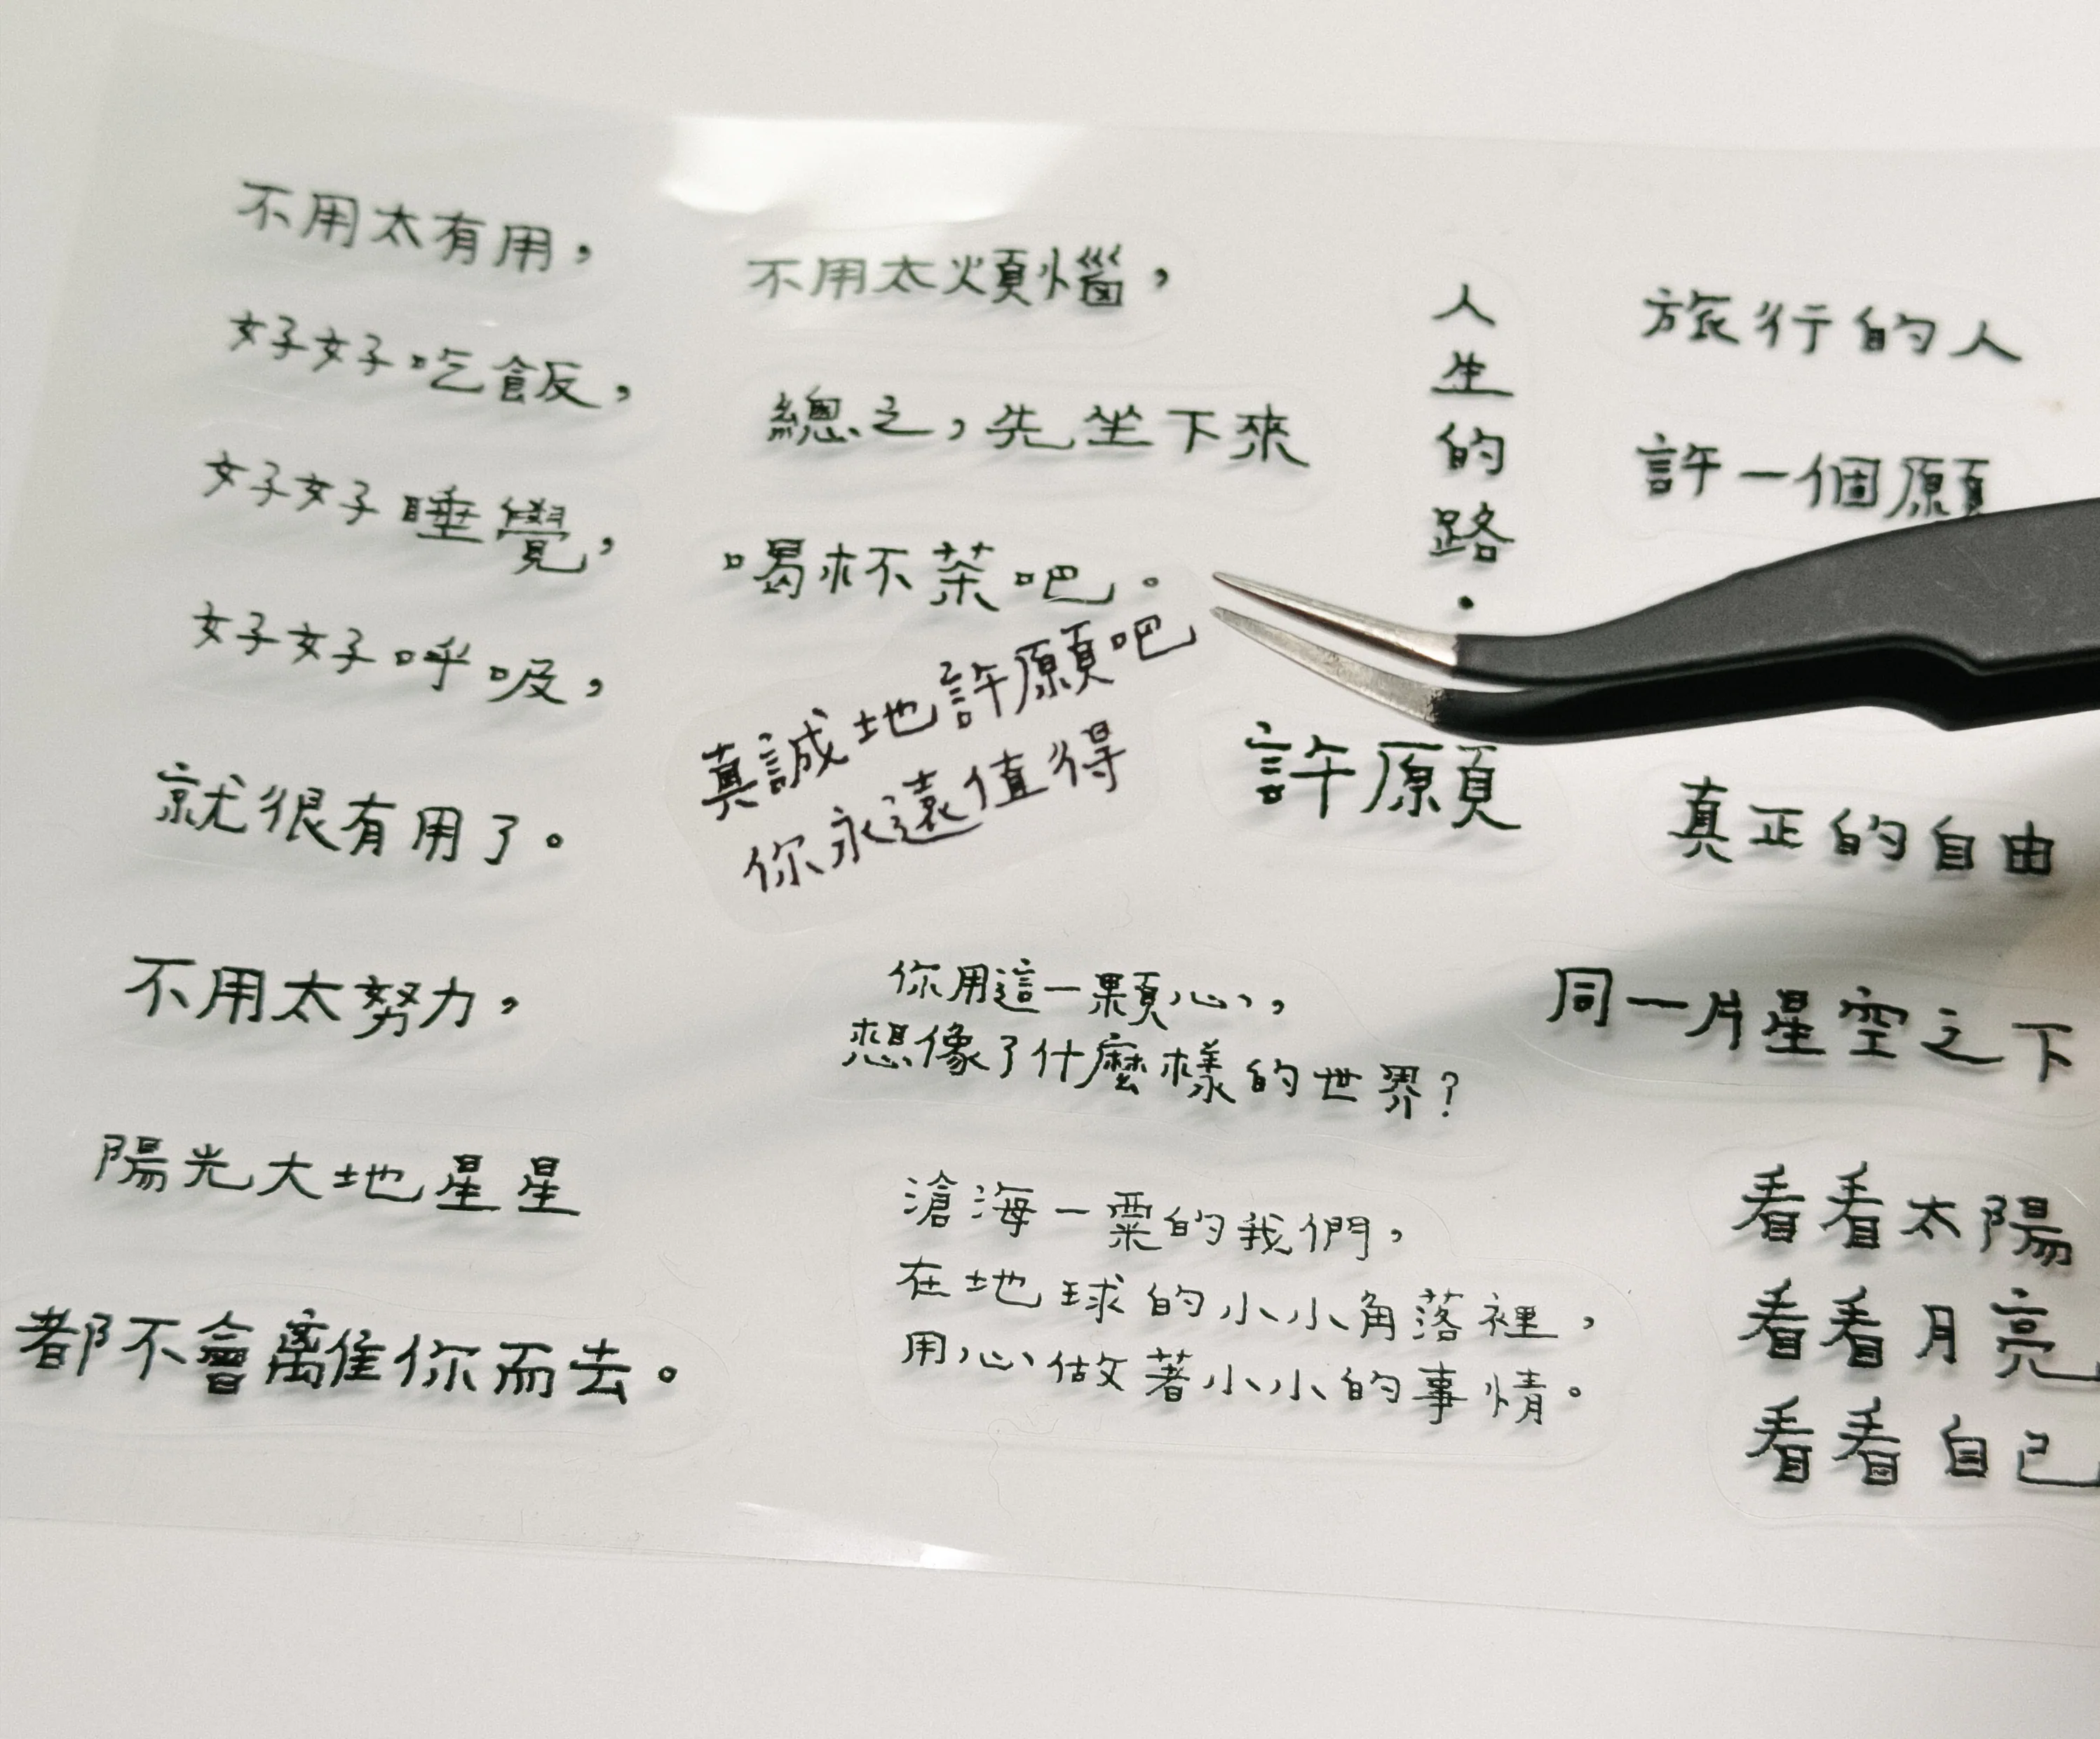 不用太有用，
好好吃飯，
好好睡覺，
好好呼吸，
就很有用了。
不用太努力，
陽光大地星星
都不會離你而去。
不用太煩惱，
總之，先坐下來
喝杯茶吧。
真誠地許願吧
你永遠值得
人生的路．
許願
旅行的人
許一個願
真正的自由
你用這一顆心，
想像了什麼樣的世界？
滄海一粟的我們，
在地球的小小角落裡，
用心做著小小的事情。
同一片星空之下
看看太陽
看看月亮
看看自己